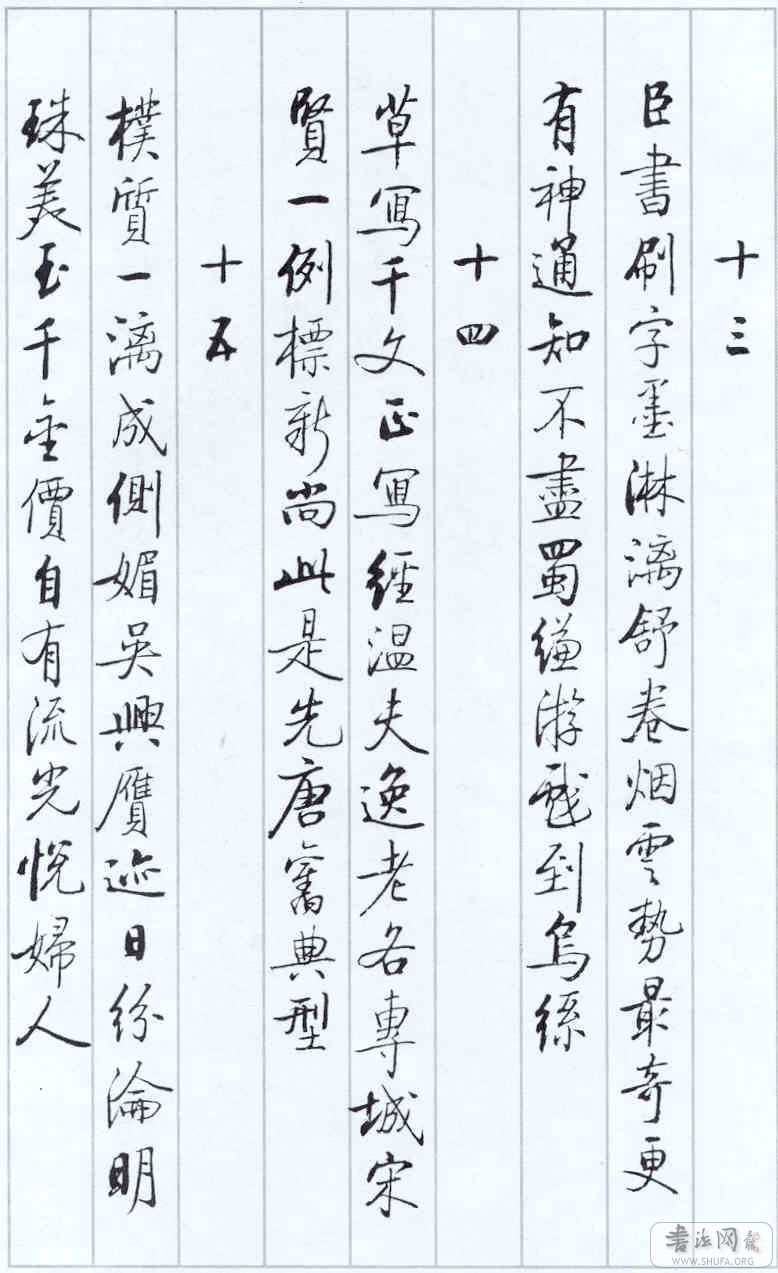 十三
臣書刷字墨淋漓舒卷烟雲勢最奇更
有神通知不盡蜀縑游戲到烏絲
十四
草寫千文正寫經温夫逸老各專城宋
賢一例標新尚此是先唐舊典型
十五
樸質一漓成側媚吳興贋迹日紛淪明
珠美玉千金價自有流光悦婦人
書法网
WWW.SHUFA.ORG